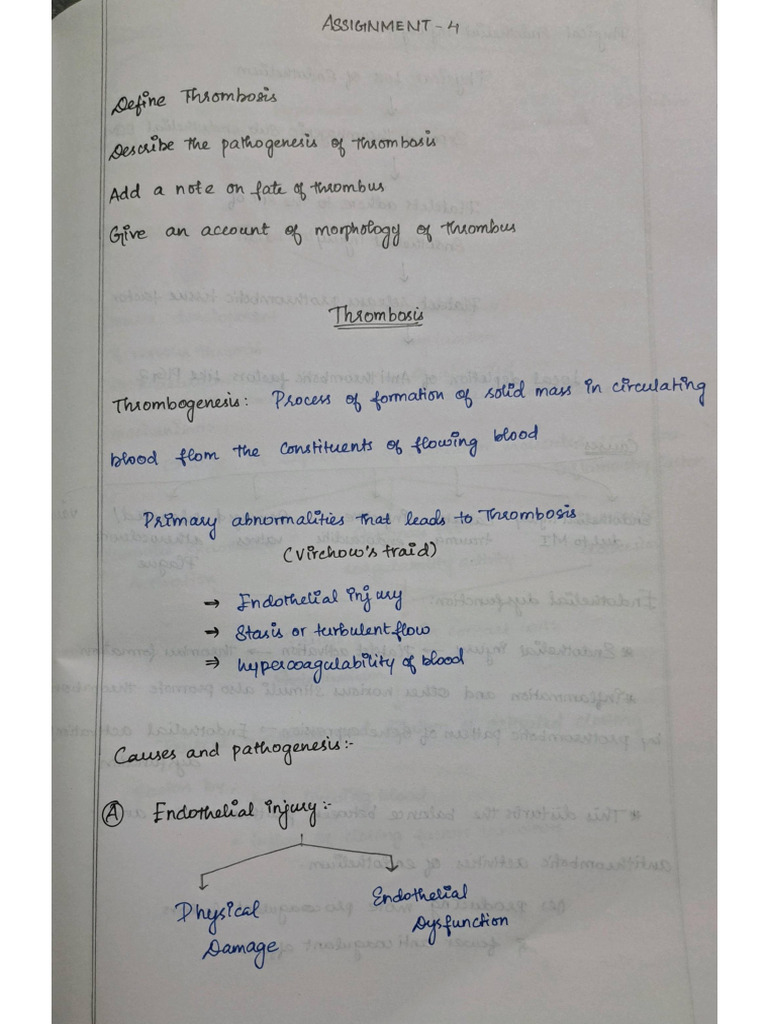 ASSIGNMENT - 4
Define Thrombosis
Describe the pathogenesis of thrombosis
Add a note on fate of thrombus
Give an account of morphology of thrombus
Thrombosis
Thrombogenesis: Process of formation of solid mass in circulating
blood flom the constituents of flowing blood
Primary abnormalities that leads to Thrombosis
(Virchow's traid)
→ Endothelial injury
→ Stasis or turbulent flow
⇒ hypercoagulability of blood
Causes and pathogenesis:-
Ⓐ Endothelial injury:-
Physical Damage
Endothelial Dysfunction